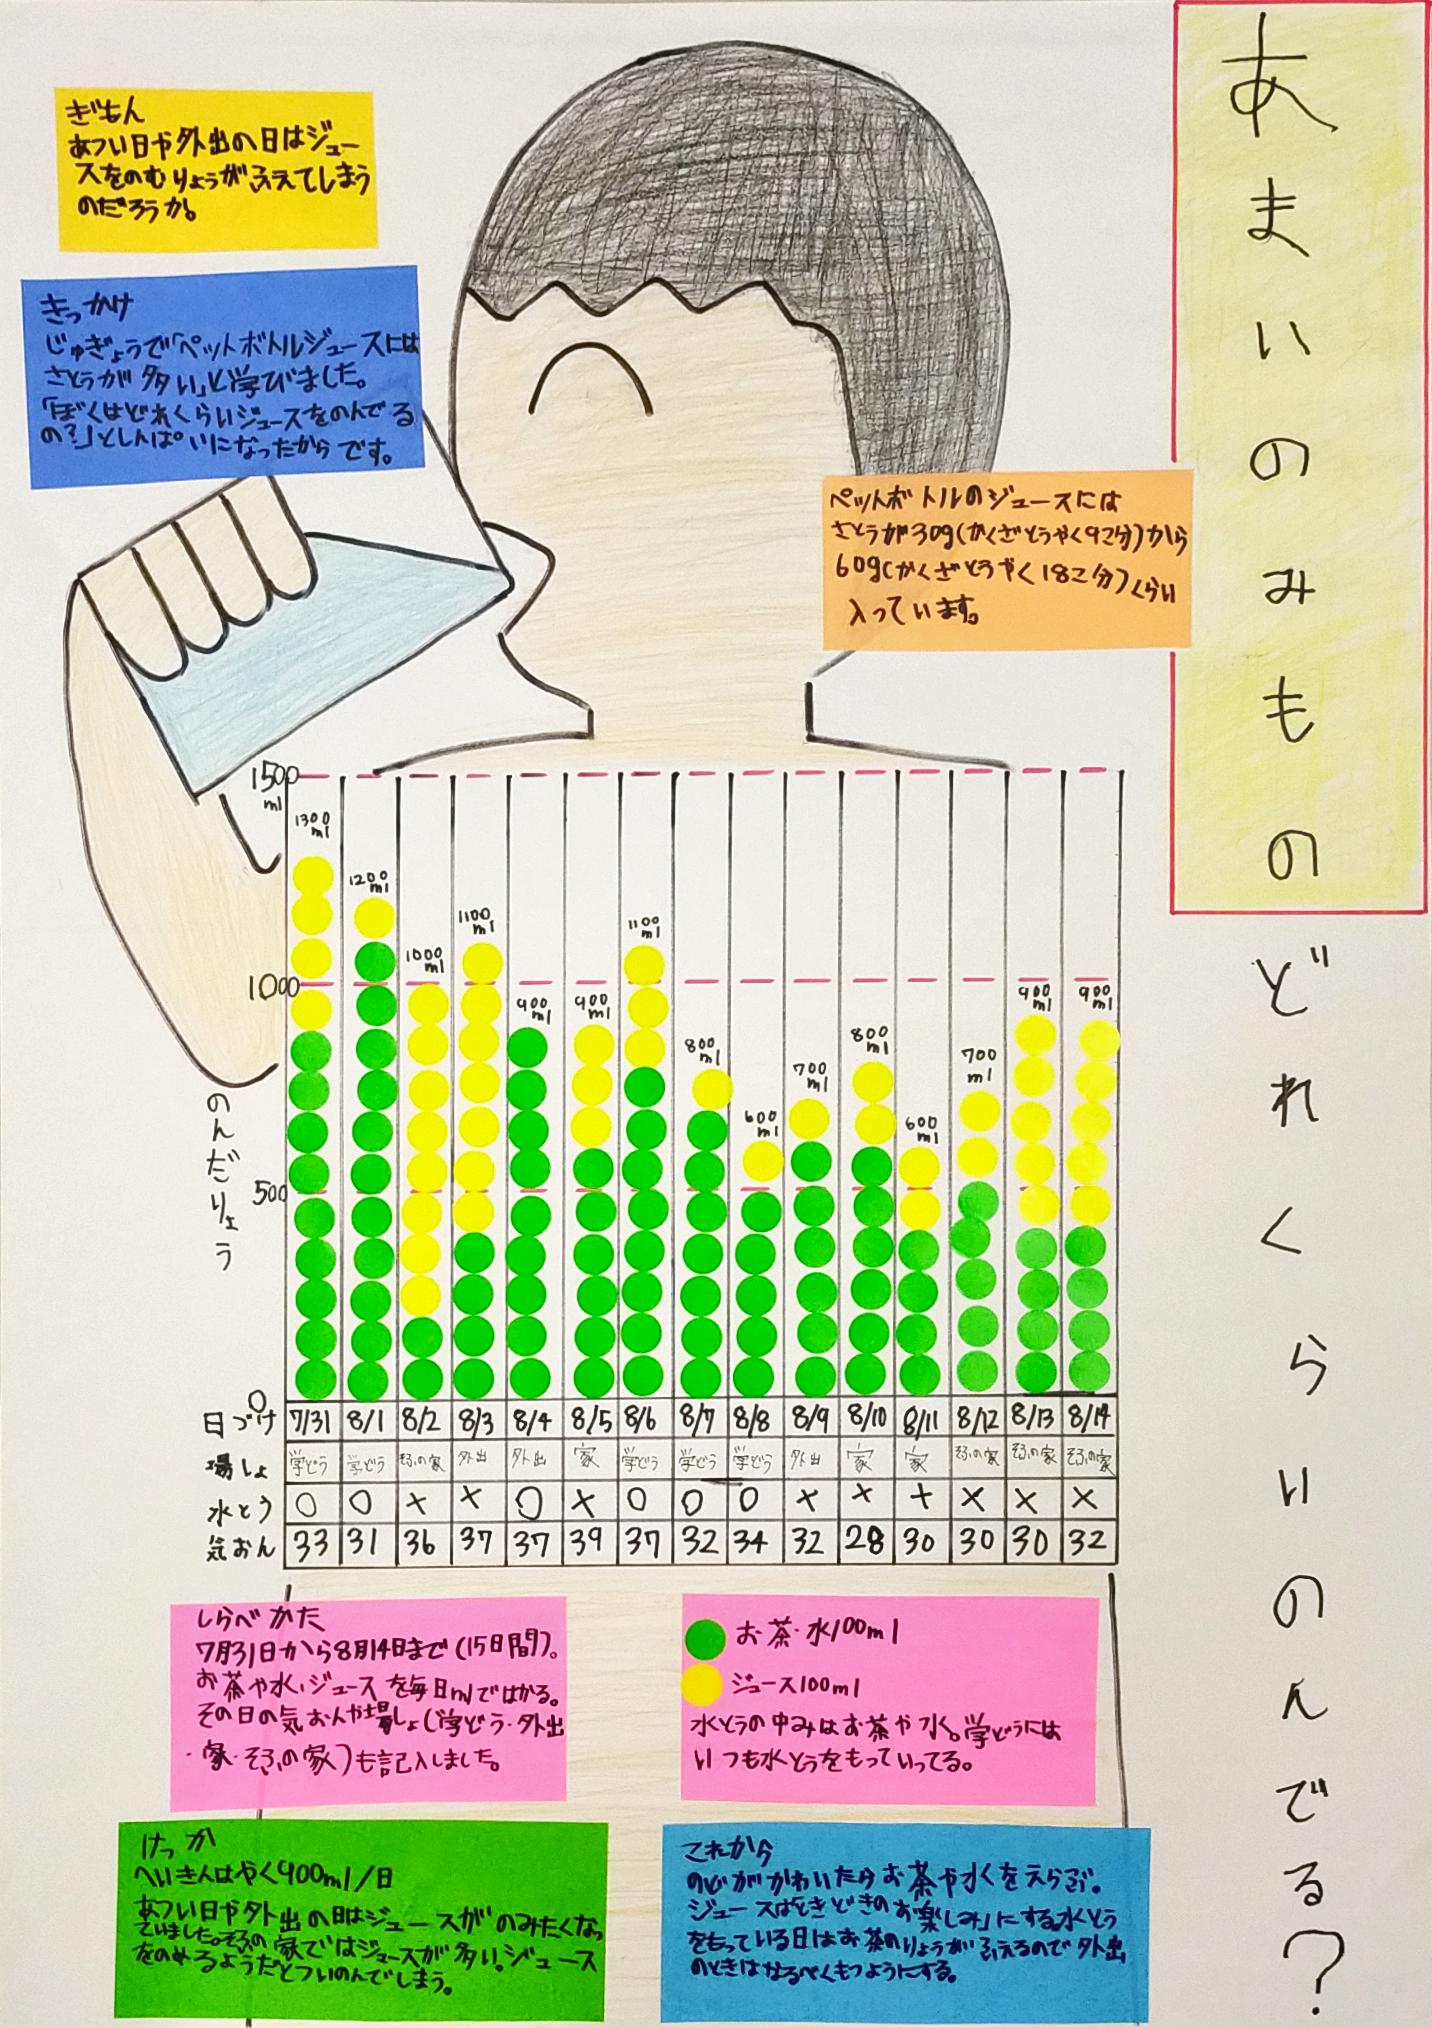 あまいのみもの どれくらいのんでる?
ぎもん
あつい日や外出の日はジュー
スをのむりょうがふえてしまう
のだろうか。
きっかけ
じゅぎょうで「ペットボトルジュースには
さとうが多い」と学びました。
「ぼくはどれくらいジュースをのんでる
の?」としんぱいになったからです。
ペットボトルのジュースには
さとうが30g(かくざとうやく9こ分)から
60g(かくざとうやく18こ分)くらい
入っています。
1500
ml
1000
500
0
のんだりょう
1300ml 1200ml 1000ml 1100ml 900ml 900ml 1100ml 800ml 600ml 700ml 800ml 600ml 700ml 900ml 900ml
日づけ 7/31 8/1 8/2 8/3 8/4 8/5 8/6 8/7 8/8 8/9 8/10 8/11 8/12 8/13 8/14
場しょ 学どう 学どう そふの家 外出 外出 家 学どう 学どう 学どう 外出 家 家 そふの家 そふの家 そふの家
水とう ○ ○ × × ○ × ○ ○ ○ × × × × × ×
気おん 33 31 36 37 37 39 37 32 34 32 28 30 30 30 32
しらべかた
7月31日から8月14日まで(15日間)。
お茶や水、ジュースを毎日mlではかる。
その日の気おんや場しょ(学どう・外出
・家・そふの家)も記入しました。
お茶・水100ml
ジュース100ml
水とうの中みはお茶や水。学どうには
いつも水とうをもっていってる。
けっか
へいきんはやく900ml/日
あつい日や外出の日はジュースがのみたくなっ
ていました。そふの家ではジュースが多い。ジュース
をのめるようだとついのんでしまう。
これから
のどがかわいたらお茶や水をえらぶ。
ジュースは「ときどきのお楽しみ」にする。水とう
をもっている日はお茶のりょうがふえるので外出
のときはなるべくもつようにする。